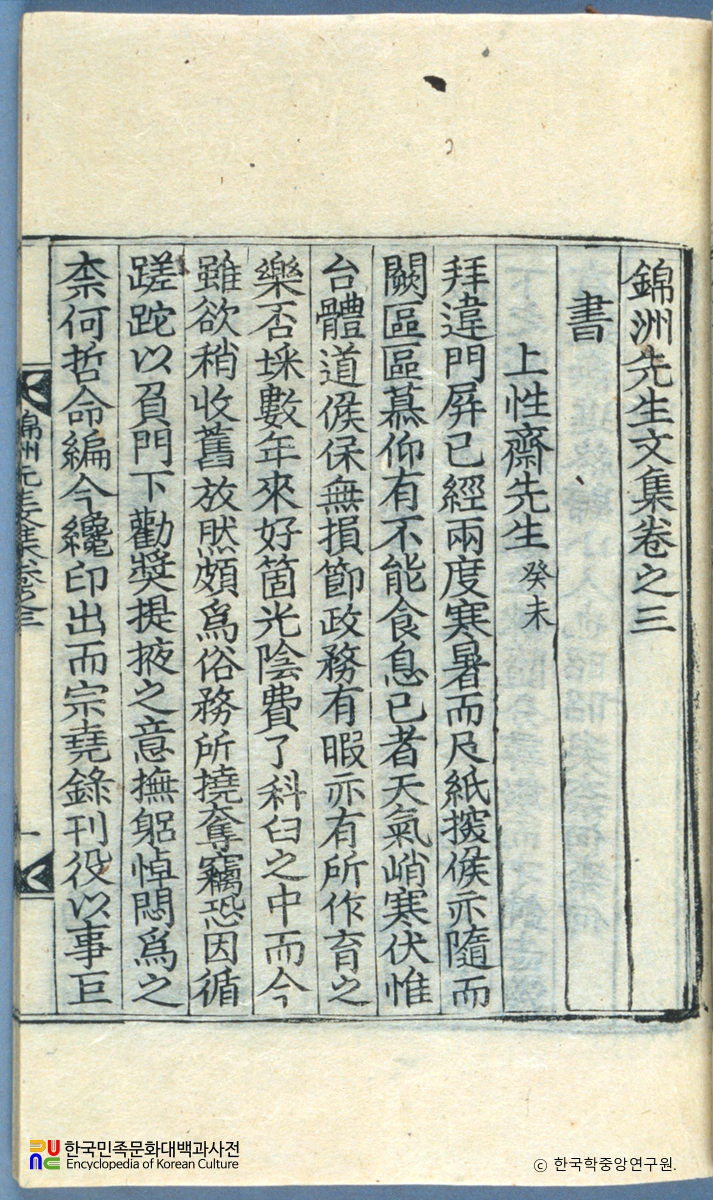 錦洲先生文集卷之三
書
上性齋先生 癸未
拜違門屛已經兩度寒暑而尺紙探候亦隨而
闕區區慕仰有不能食息已者天氣峭寒伏惟
台體道候保無損節政務有暇亦有所作育之
樂否埰數年來好箇光陰費了科臼之中而今
雖欲稍收舊放然頗爲俗務所撓奪竊恐因循
蹉跎以負門下勸奬提掖之意撫躬悼悶爲之
柰何哲命編今纔印出而宗堯錄刊役以事巨
錦洲先生文集卷之三
一
한국민족문화대백과사전
Encyclopedia of Korean Culture
© 한국학중앙연구원.